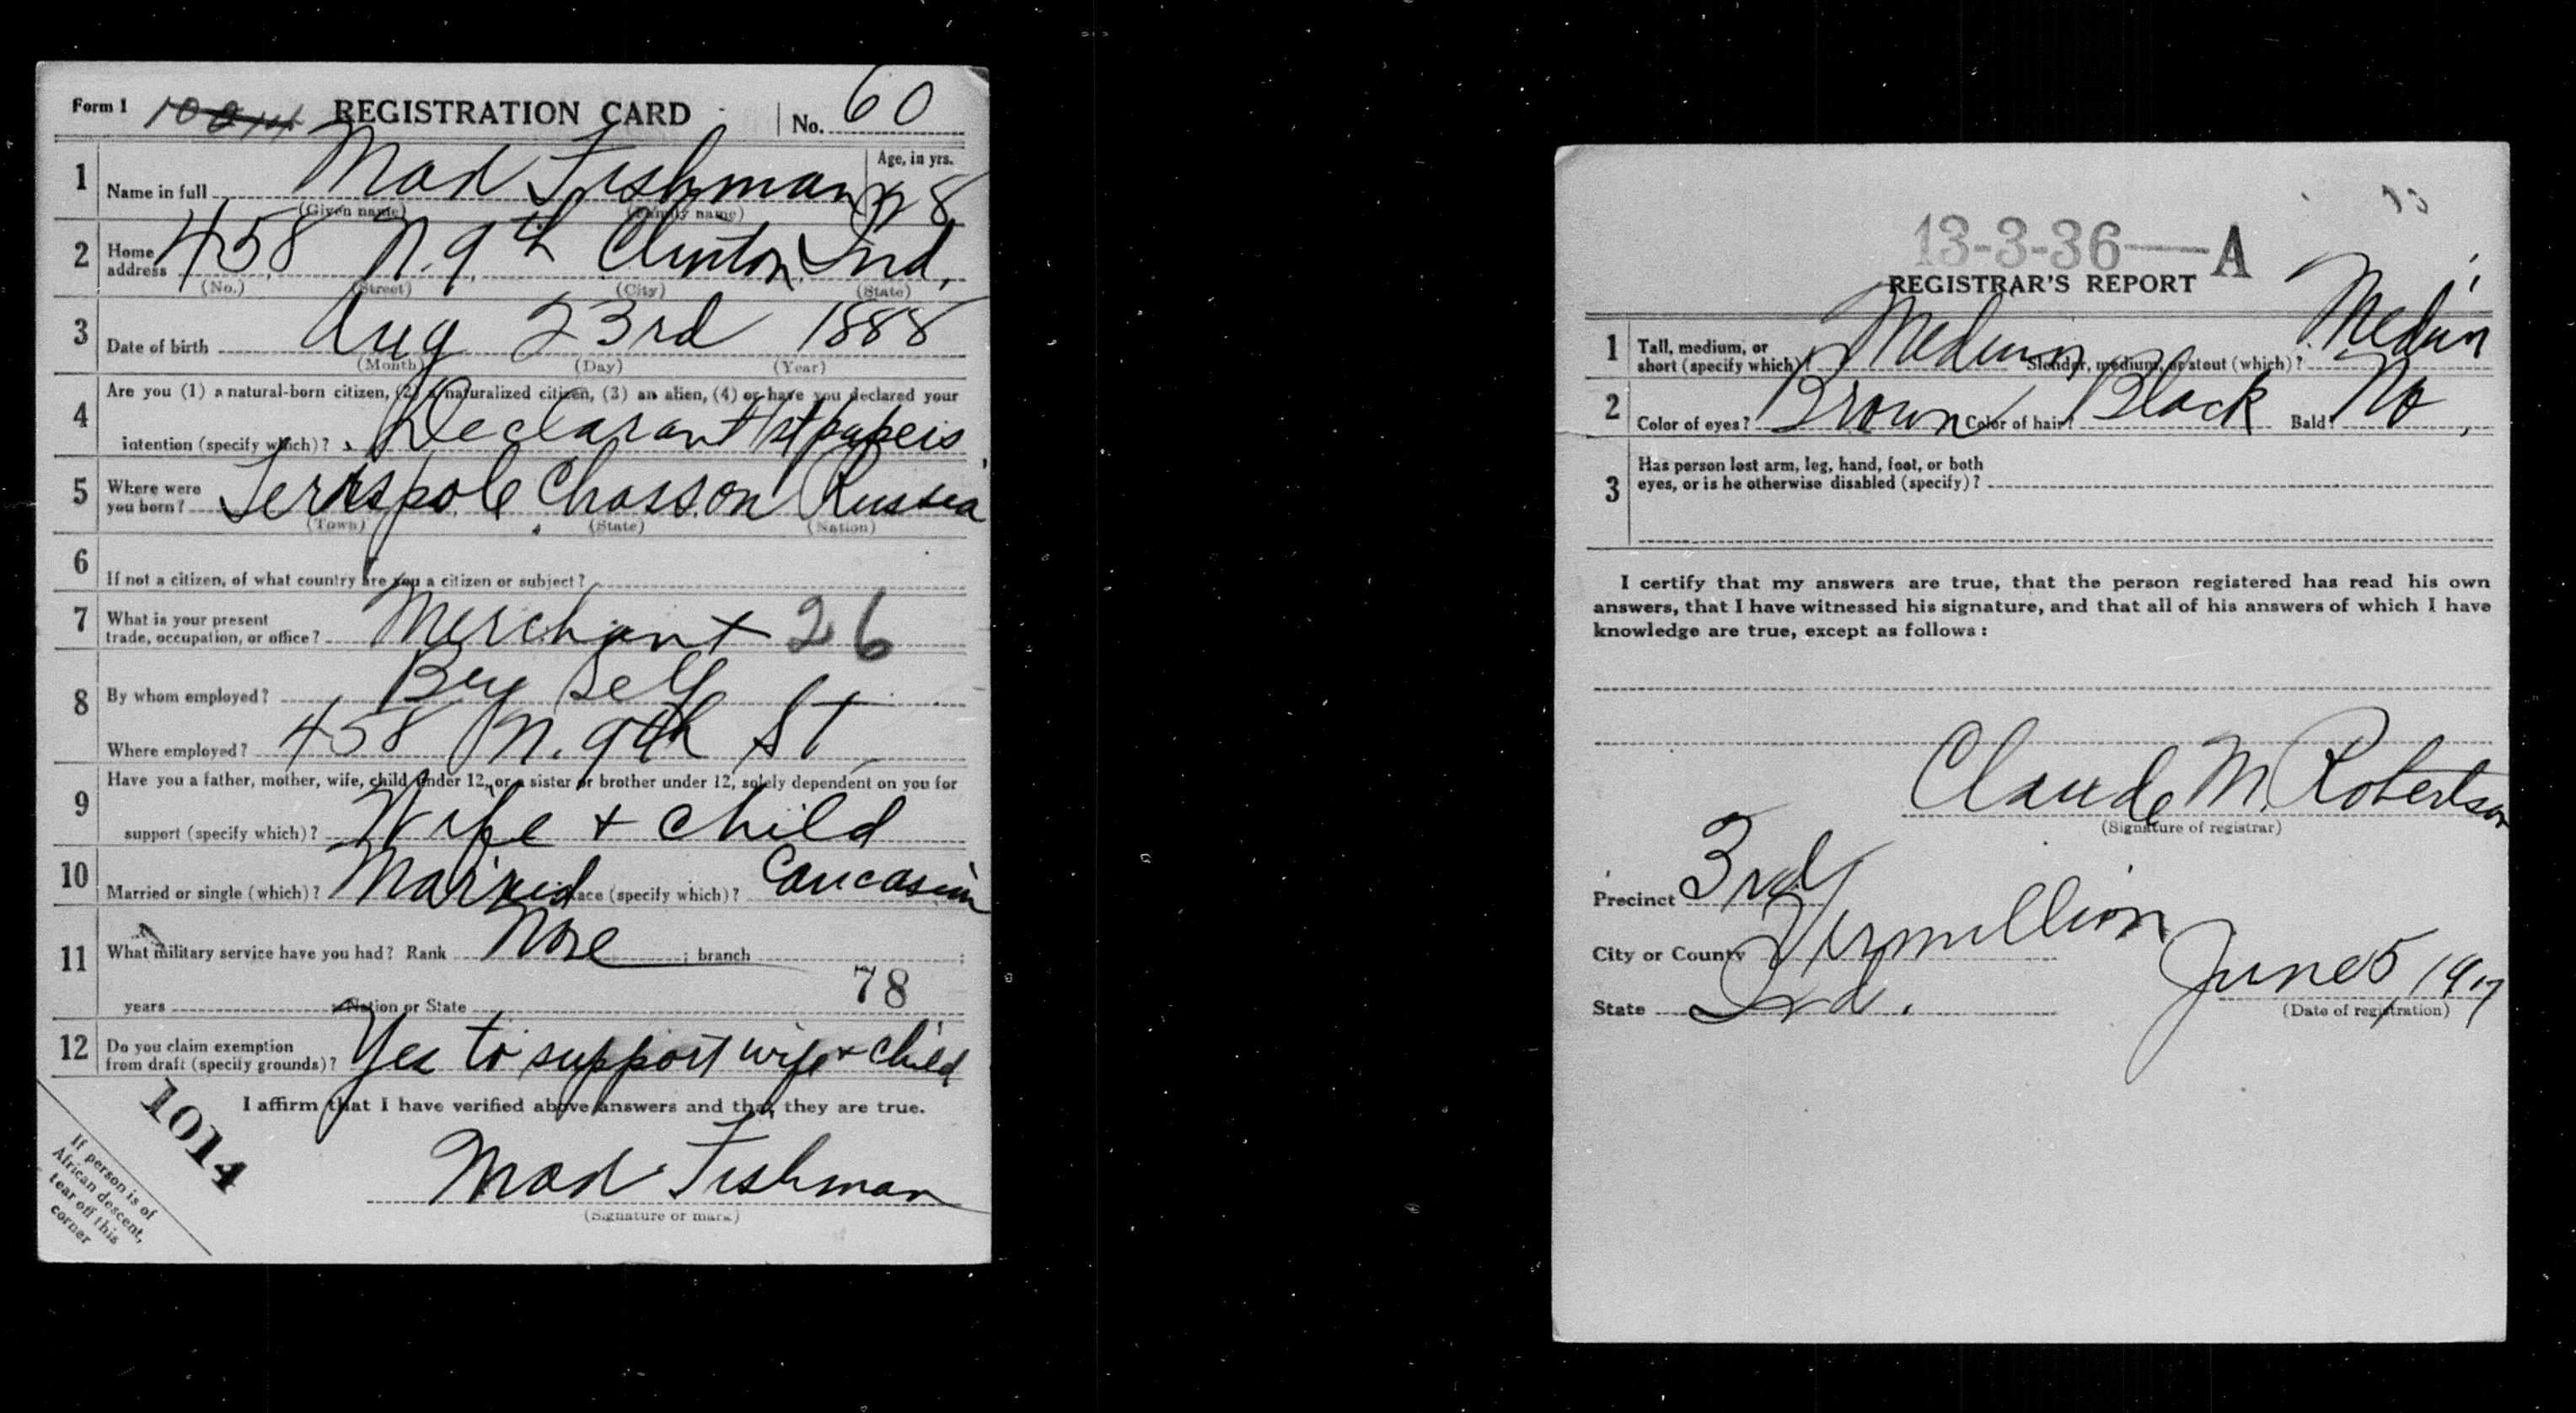 Form 1 REGISTRATION CARD No. 60
1 Name in full Mad Fishman Age, in yrs. 28
(Given name) (Family name)
2 Home address 458 N. 9th Clinton Ind.
(No.) (Street) (City) (State)
3 Date of birth Aug 23rd 1888
(Month) (Day) (Year)
4 Are you (1) a natural-born citizen, (2) a naturalized citizen, (3) an alien, (4) or have you declared your
intention (specify which)? Declarant 1st papers
5 Where were you born? Terispole Chasson Russia
(Town) (State) (Nation)
6 If not a citizen, of what country are you a citizen or subject?
7 What is your present trade, occupation, or office? Merchant 26
8 By whom employed? By Self
Where employed? 458 N. 9th St
9 Have you a father, mother, wife, child under 12, or a sister or brother under 12, solely dependent on you for
support (specify which)? Wife + child
10 Married or single (which)? Married Race (specify which)? Caucasian
11 What military service have you had? Rank None ; branch ;
years ; Nation or State 78
12 Do you claim exemption from draft (specify grounds)? Yes to support wife + child
I affirm that I have verified above answers and that they are true.
Mad Fishman
(Signature or mark)
1014
If person is of
African descent,
tear off this
corner
13-3-36 — A
REGISTRAR'S REPORT
1 Tall, medium, or short (specify which)? Medium Slender, medium, or stout (which)? Medium
2 Color of eyes? Brown Color of hair? Black Bald? No
3 Has person lost arm, leg, hand, foot, or both
eyes, or is he otherwise disabled (specify)?
I certify that my answers are true, that the person registered has read his own
answers, that I have witnessed his signature, and that all of his answers of which I have
knowledge are true, except as follows:
Claude M. Robertson
(Signature of registrar)
Precinct 3rd
City or County Vermillion
State Ind. June 5 1917
(Date of registration)